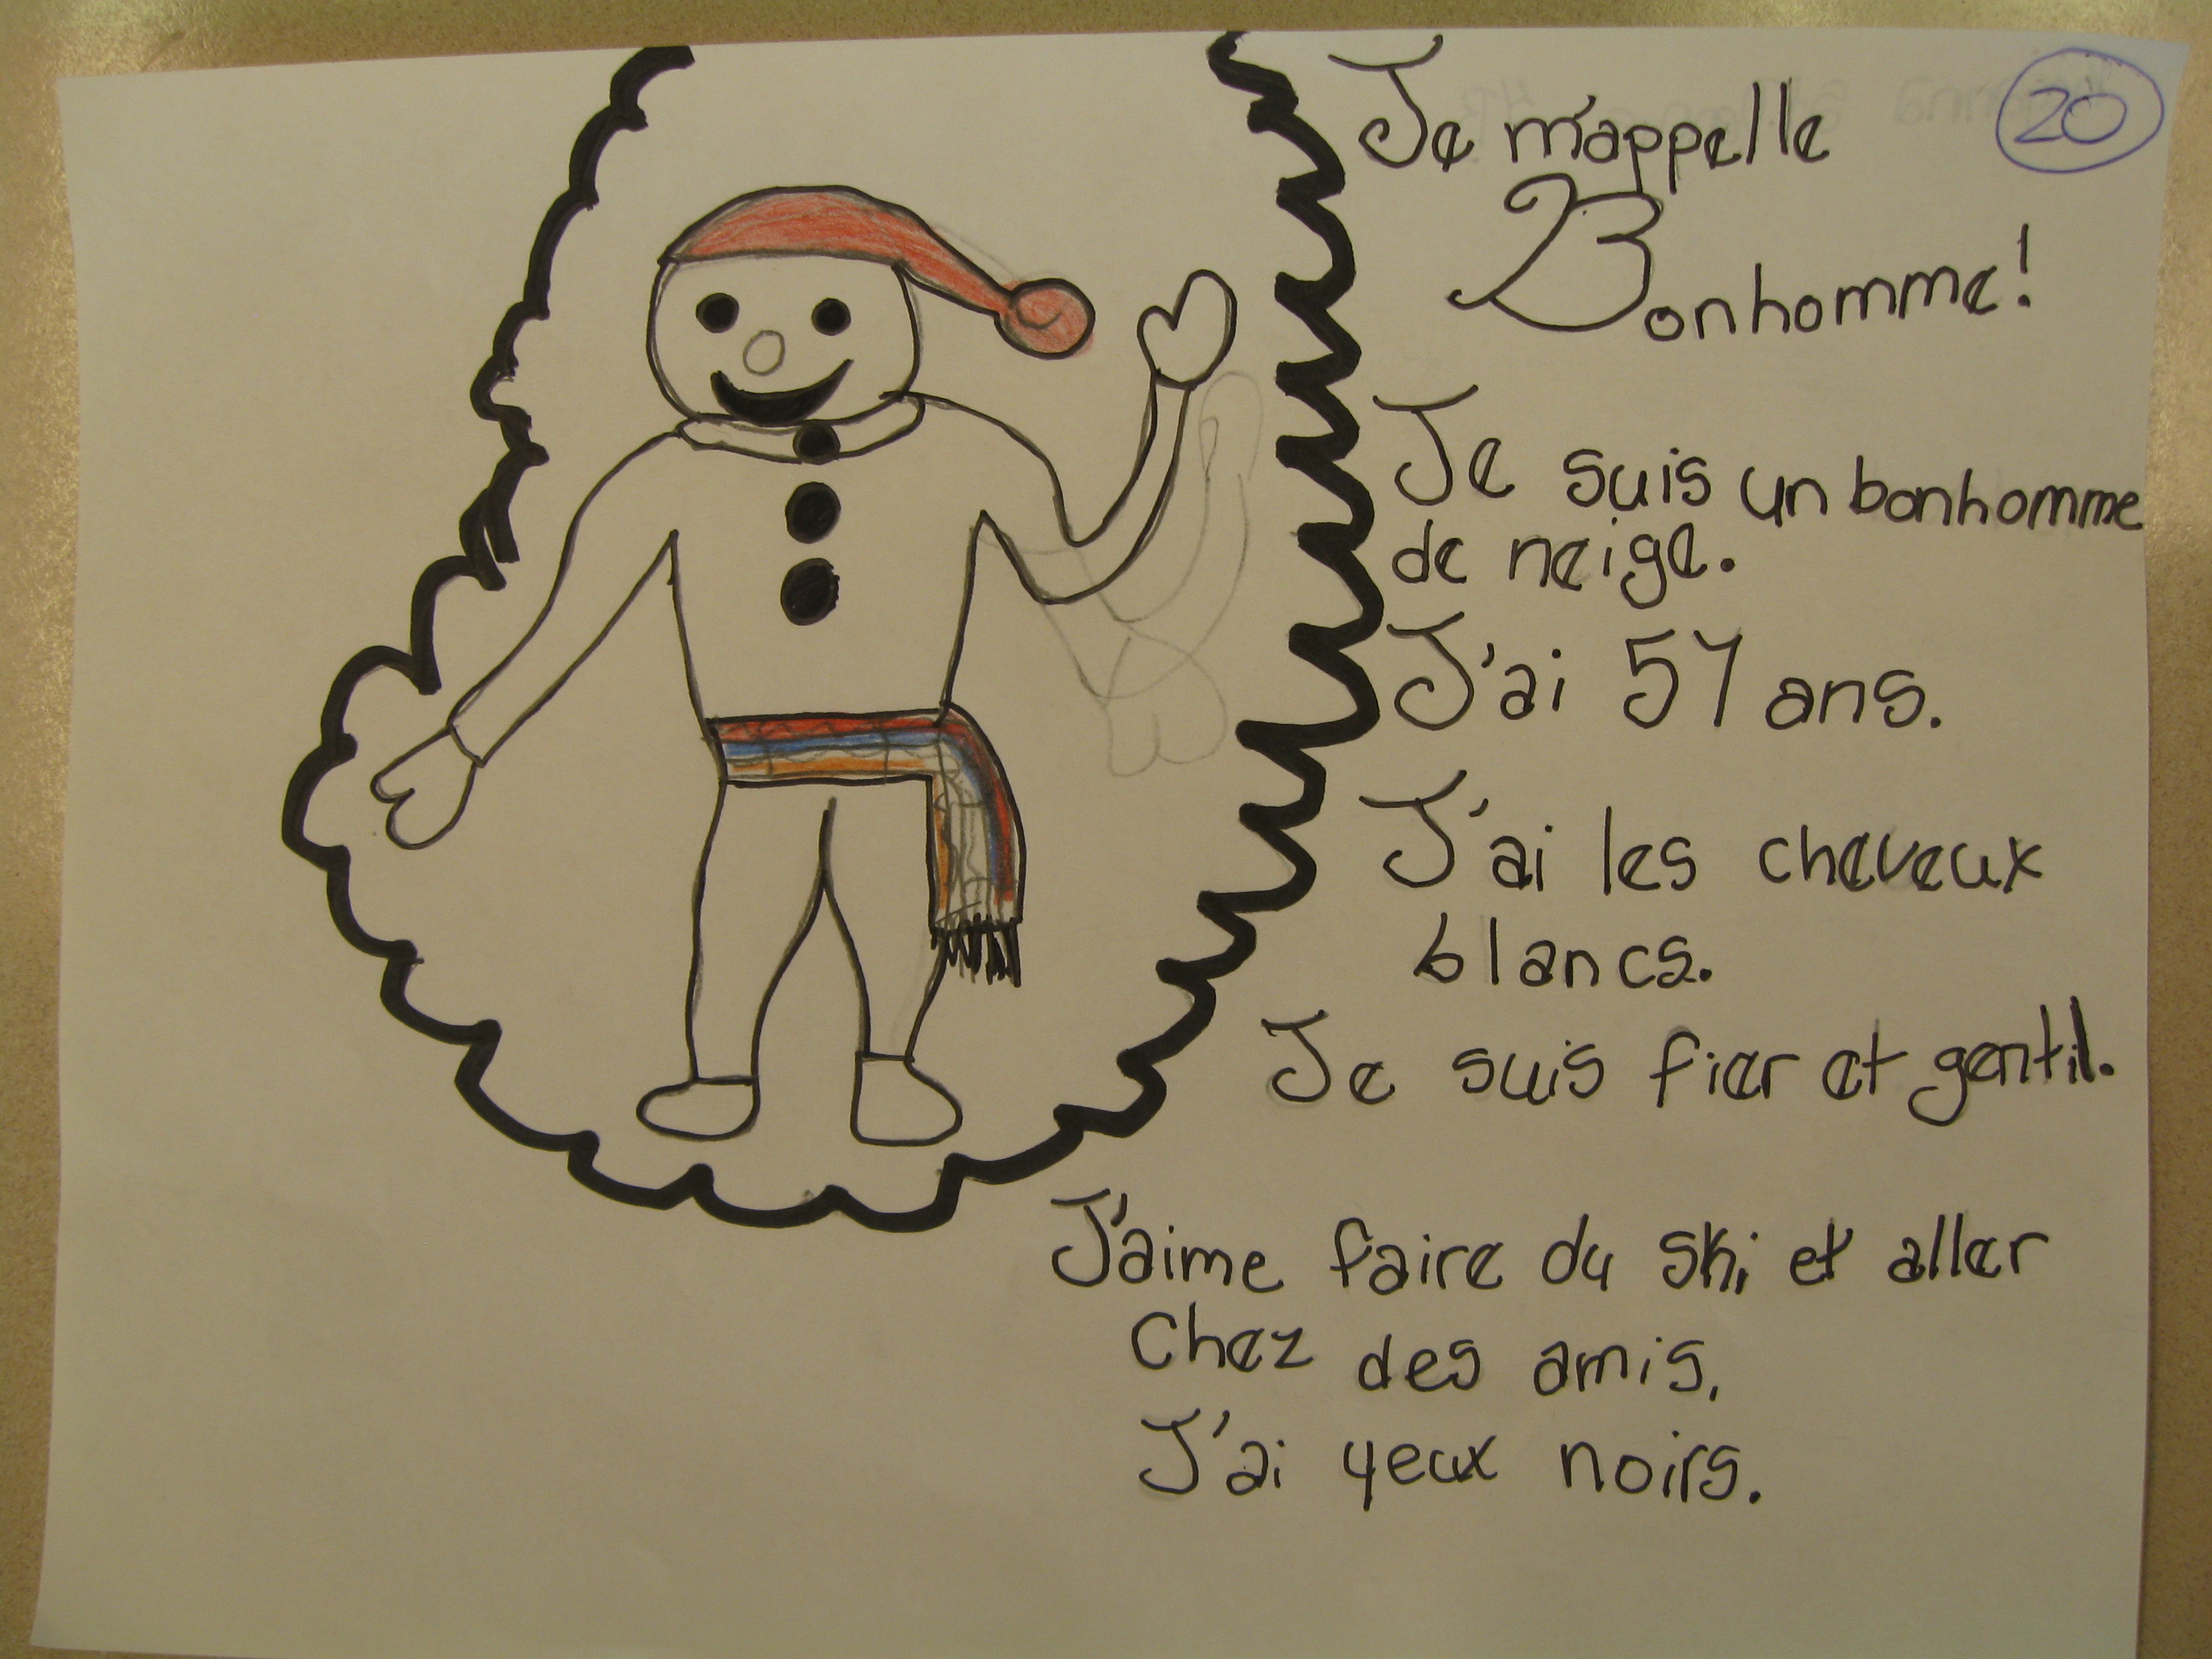 Je m'appelle
20
Bonhomme!
Je suis un bonhomme
de neige.
J'ai 57 ans.
J'ai les cheveux
blancs.
Je suis fier et gentil.
J'aime faire du ski et aller
chez des amis.
J'ai yeux noirs.